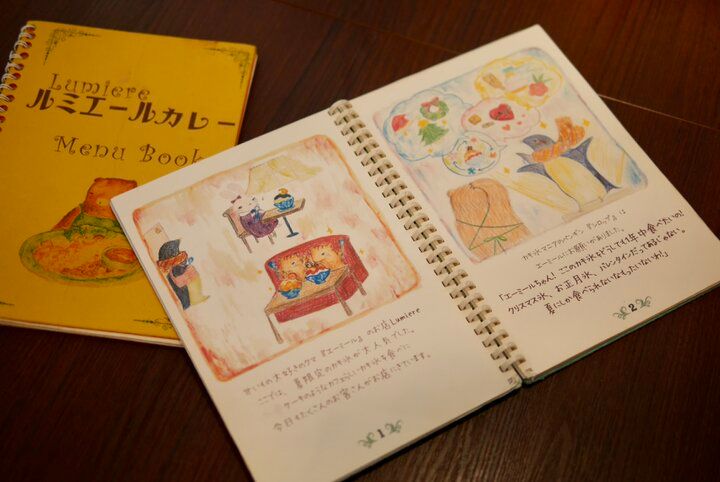 Lumiere
ルミエールカレー
Menu Book
甘いもの大好きのクマ『エーミール』のお店Lumiere
ここでは、夏限定のカキ氷が大人気でした。
ケーキのようなカフェらしいカキ氷を食べに
今日もたくさんのお客さんがお店にきています。
1
カキ氷マニアのペンギン『シロップ』は
エーミールにお願いがありました。
「エーミールちゃん！ここのカキ氷をどうしても1年中食べたいの！
クリスマス氷、お正月氷、バレンタインだってあるじゃない。
夏にしか食べられないなんてもったいないわ！」
2